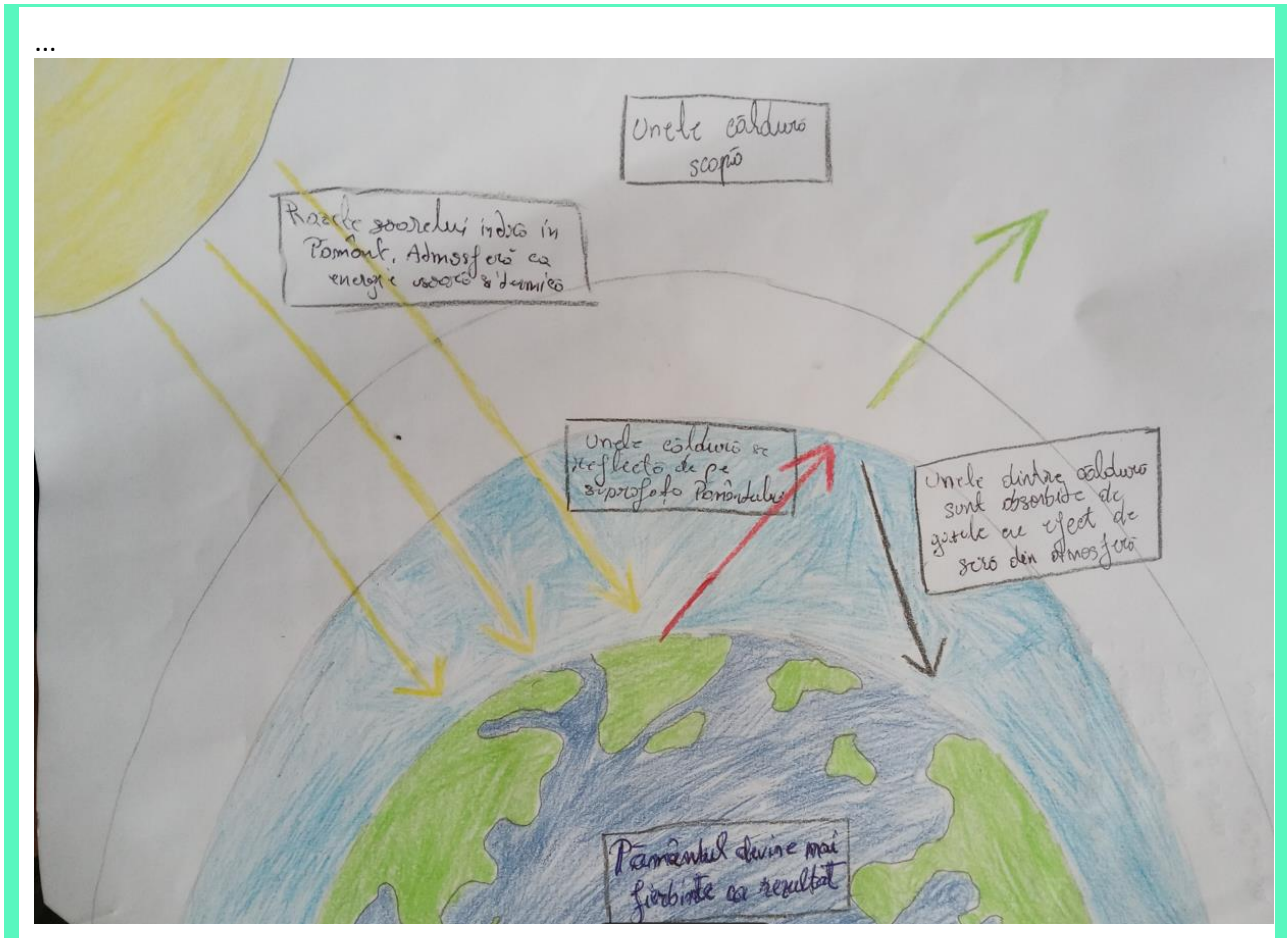 ...
Unele căldură
scapă
Razele soarelui indică în
Pământ, Admosferă ca
energie
Unele căldură se
reflectă de pe
siprofața Pământului
Unele dintre căldură
sunt absorbite de
gazele cu efect de
seră din atmosferă
Pamântul devine mai
fierbinte ca rezultat